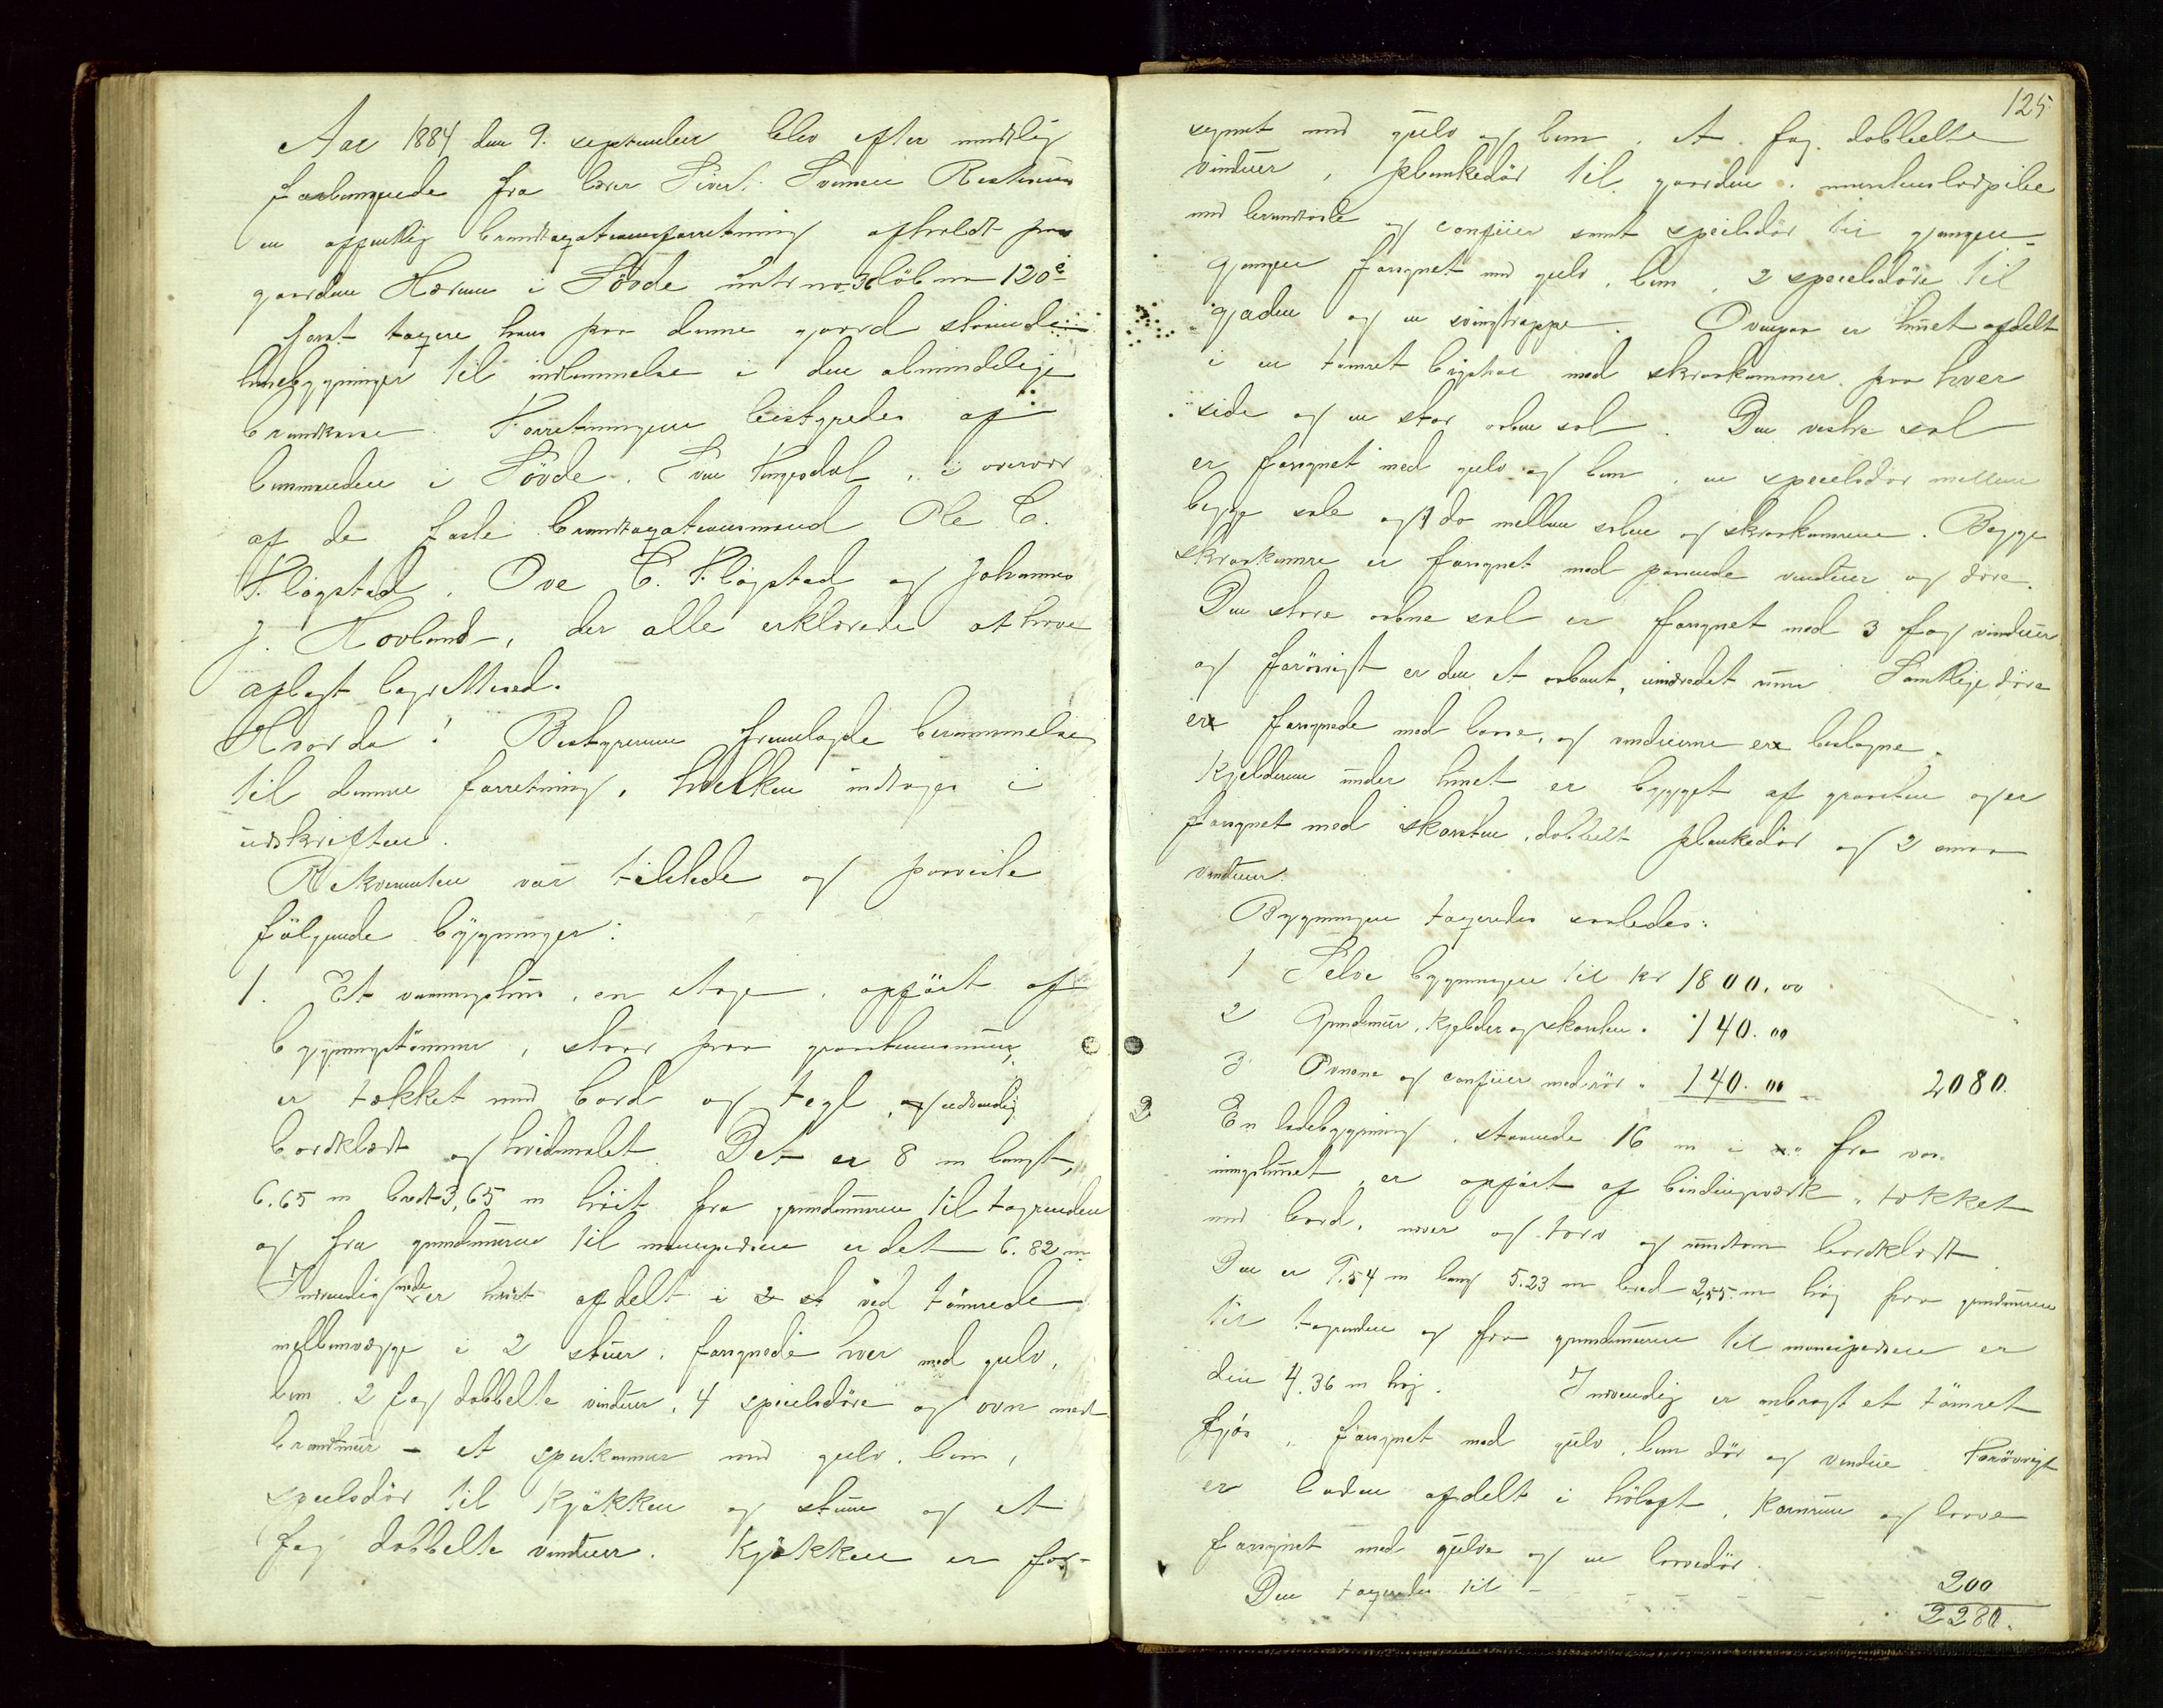 Aar 1884 den 9. september blev efter mundtlig
forlangende fra lærer Sivert Svensen Rasthuus
en offentlig brandtaxationsforretning afholdt paa
gaarden Hærum i Søvde matr no 36 løb no 120 c
for at taxere hans paa denne gaard staaende
husebygninger til indlemmelse i den almindelige
brandkasse. Forretningen bestyredes af
lensmanden i Søvde, Sven Tengesdal, i overvær
af de faste brandtaxationsmænd Ole C.
Fløgstad, Ove C. Fløgstad og Johannes
J. Hovland, der alle erklærede at have
aflagt lagrettesed.
Hvorda! Bestyreren fremlagde berammelse
til denne forretning, hvilken indtages i
udskriften.
Rekvirenten var tilstede og paaviste
følgende bygninger:
1. Et vaaningshus, en etage, opført af
bygningstømmer, staar paa graastensmuur,
er tækket med bord og tegl, og udvendig
bordklædt og hvidmalet. Det er 8 m langt,
6.65 m bredt 3,65 m høit fra grundmuren til tagrenden
og fra grundmuren til mønespidsen er det 6.82 m
Indvendig nede er huset afdelt i 2 st ved tømrede
mellemvægge i 2 stuer, forsynede hver med gulv,
lem, 2 fag dobbelte vinduer, 4 speilsdøre og ovn med
brandmur - et spiskammer med gulv, lem,
speilsdør til kjøkken og stuen og et
fag dobbelte vinduer. Kjøkken er for-
125
synet med gulv og lem, et fag dobbelte
vinduer, plankedør til gaarden, murstensladpibe
med brandtavle og comfur samt speilsdør til gangen -
gangen forsynet med gulv, lem, 2 speilsdøre til
gaden og en svingtrappe. Ovenpaa er huset afdelt
i en tømret bigsal med skraakammer paa hver
side og en stor aaben sal. Den vestre sal
er forsynet med gulv og lem, en speilsdør mellem
begge sale og 1 do mellem salen og skraakamrene. Begge
skraakamre er forsynet med passende vinduer og døre.
Den store aabne sal er forsynet med 3 fag vinduer
og forøvrigt er den et aabent, uindredet rum. Samtlige døre
er forsynede med laase, og vinduerne er beslagne.
Kjelderen under huset er bygget af graasten og er
forsynet med skorsten, dobbelt plankedør og 2 smaa
vinduer.
Bygningen taxeredes saaledes:
1 Selve bygningen til kr 1800.00
2 Grundmur, kjelder og skorsten " 140.00
3 Ovnene og comfuer med rør " 140.00 2080.
2 En ladebygning, staaende 16 m i fra vaa-
ningshuset, er opført af bindingsværk, tækket
med bord, næver og torv og rundtom bordklædt
Den er 9.54 m lang 5.23 m bred 2,55 m høj fra grundmuren
til tagrenden og fra grundmuren til mønespidsen er
den 4.36 m høj. Indvendig er anbragt et tømret
fjøs, forsynet med gulv, lem dør og vindue. Forøvrigt
er laden afdelt i høløgt, kornrum og laave
forsynet med gulve og en laavedør
Den taxeredes til - - - - - 200
2280.